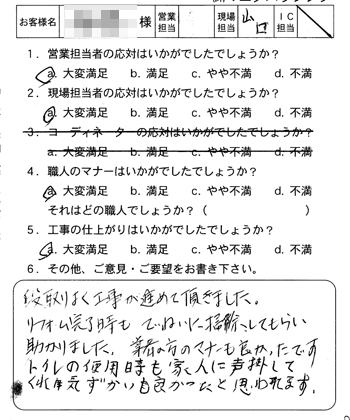 お客様名 様 営業担当 現場担当 山口 IC担当
1．営業担当者の応対はいかがでしたでしょうか？
a. 大変満足 b. 満足 c. やや不満 d. 不満
2．現場担当者の応対はいかがでしたでしょうか？
a. 大変満足 b. 満足 c. やや不満 d. 不満
3．コーディネーターの応対はいかがでしたでしょうか？
a. 大変満足 b. 満足 c. やや不満 d. 不満
4．職人のマナーはいかがでしたでしょうか？
a. 大変満足 b. 満足 c. やや不満 d. 不満
それはどの職人でしょうか？（ ）
5．工事の仕上がりはいかがでしたでしょうか？
a. 大変満足 b. 満足 c. やや不満 d. 不満
6．その他、ご意見・ご要望をお書き下さい。
段取りよく工事が進めて頂きました。
リフォーム完了時も ていねいに掃除してもらい
助かりました。業者の方のマナーも良かったです
トイレの使用時も家人に声掛して
くれ気づかいも良かったと思われます。